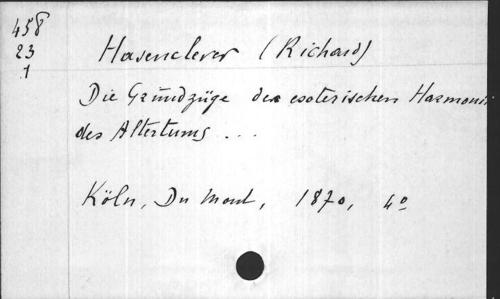 458
23
1
Hasenclever (Richard)
Die Grundzüge der esoterischen Harmonik
des Altertums ...
Köln, Du Mont, 1870, 4o